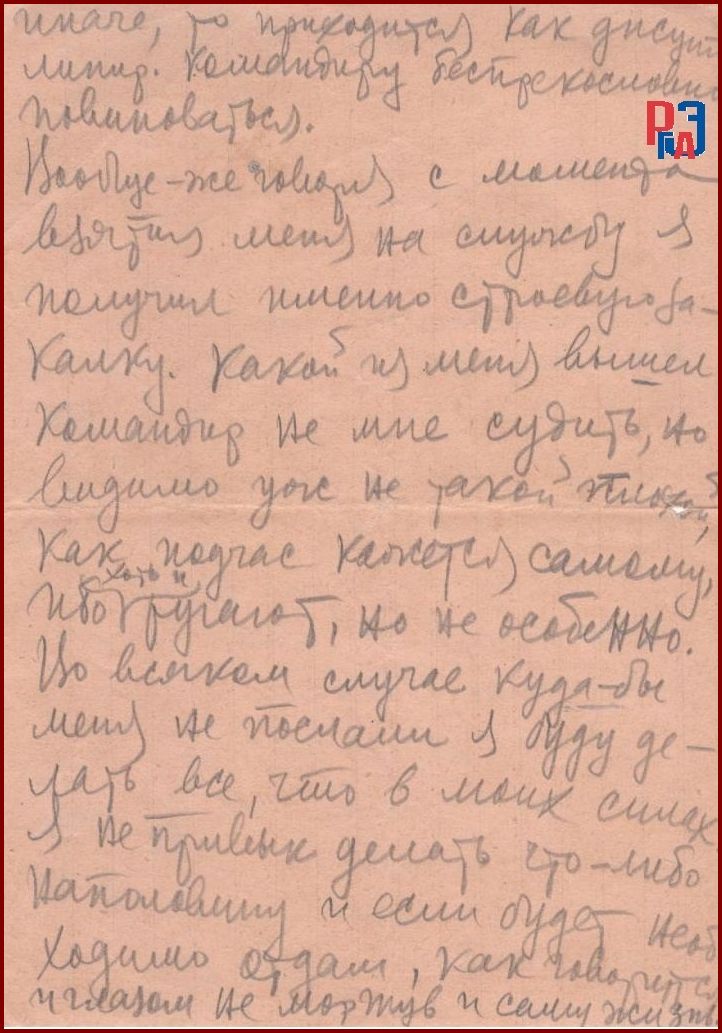 иначе, то приходится как дисцип
линир. командиру беспрекословно
повиноваться.
РГАЭ
Вообще-же говоря с момента
взятия меня на службу я
получил именно строевую за-
калку. Какой из меня вышел
командир не мне судить, но
видимо уж не такой плохой,
как подчас кажется самому,
хоть и
ибо ругают, но не особенно.
Во всяком случае куда-бы
меня не послали я буду де-
лать все, что в моих силах
я не привык делать что-либо
наполовину и если будет необ
ходимо отдам, как говорится
и глазом не моргнув и саму жизнь